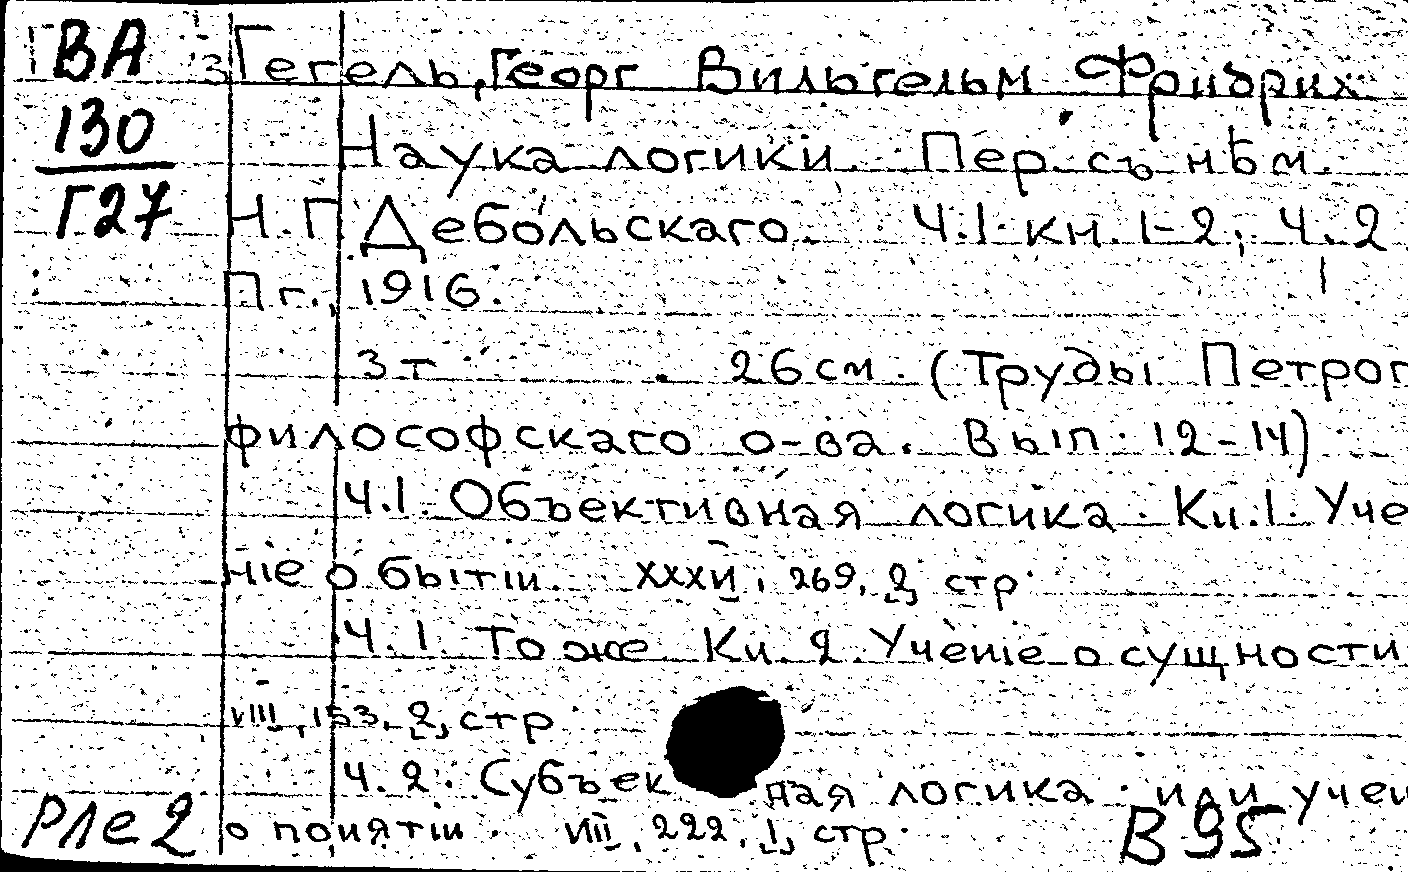 ВА
130
Г27
Гегель, Георг Вильгельм Фридрих
Наука логики. Пер. съ нѣм.
Н.Г. Дебольскаго. Ч.1. кн. 1-2; Ч. 2
Пг., 1916.
3 т. 26 см. (Труды Петрог
философскаго о-ва. Вып. 12-14)
Ч.1. Объективная логика. Кн.1. Уче
ніе о бытіи. 269, 2, стр.
Ч. 1. То же Кн. 2. Ученіе о сущности
VIII, 153, 2, стр.
Ч. 2. Субъек ная логика. или учен
о понятіи. VIII, 222, 1, стр.
РЛе2
В 95